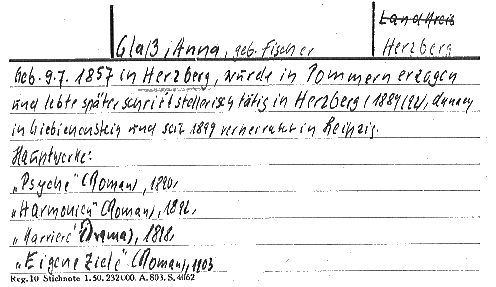 Landkreis
Glaß, Anna, geb. Fischer
Herzberg
Geb. 9.7. 1857 in Herzberg, wurde in Pommern erzogen
und lebte später schriftstellerisch tätig in Herzberg (1889/92), danach
in Giebichenstein und seit 1899 verheiratet in Leipzig.
Hauptwerke:
„Psyche" (Roman), 1890,
„Harmonien" (Roman), 1892,
„Karriere" (Drama), 1898,
„Eigene Ziele" (Roman), 1903
Reg. 10 Stichnote 1. 50. 232 000. A. 803. S. 4062